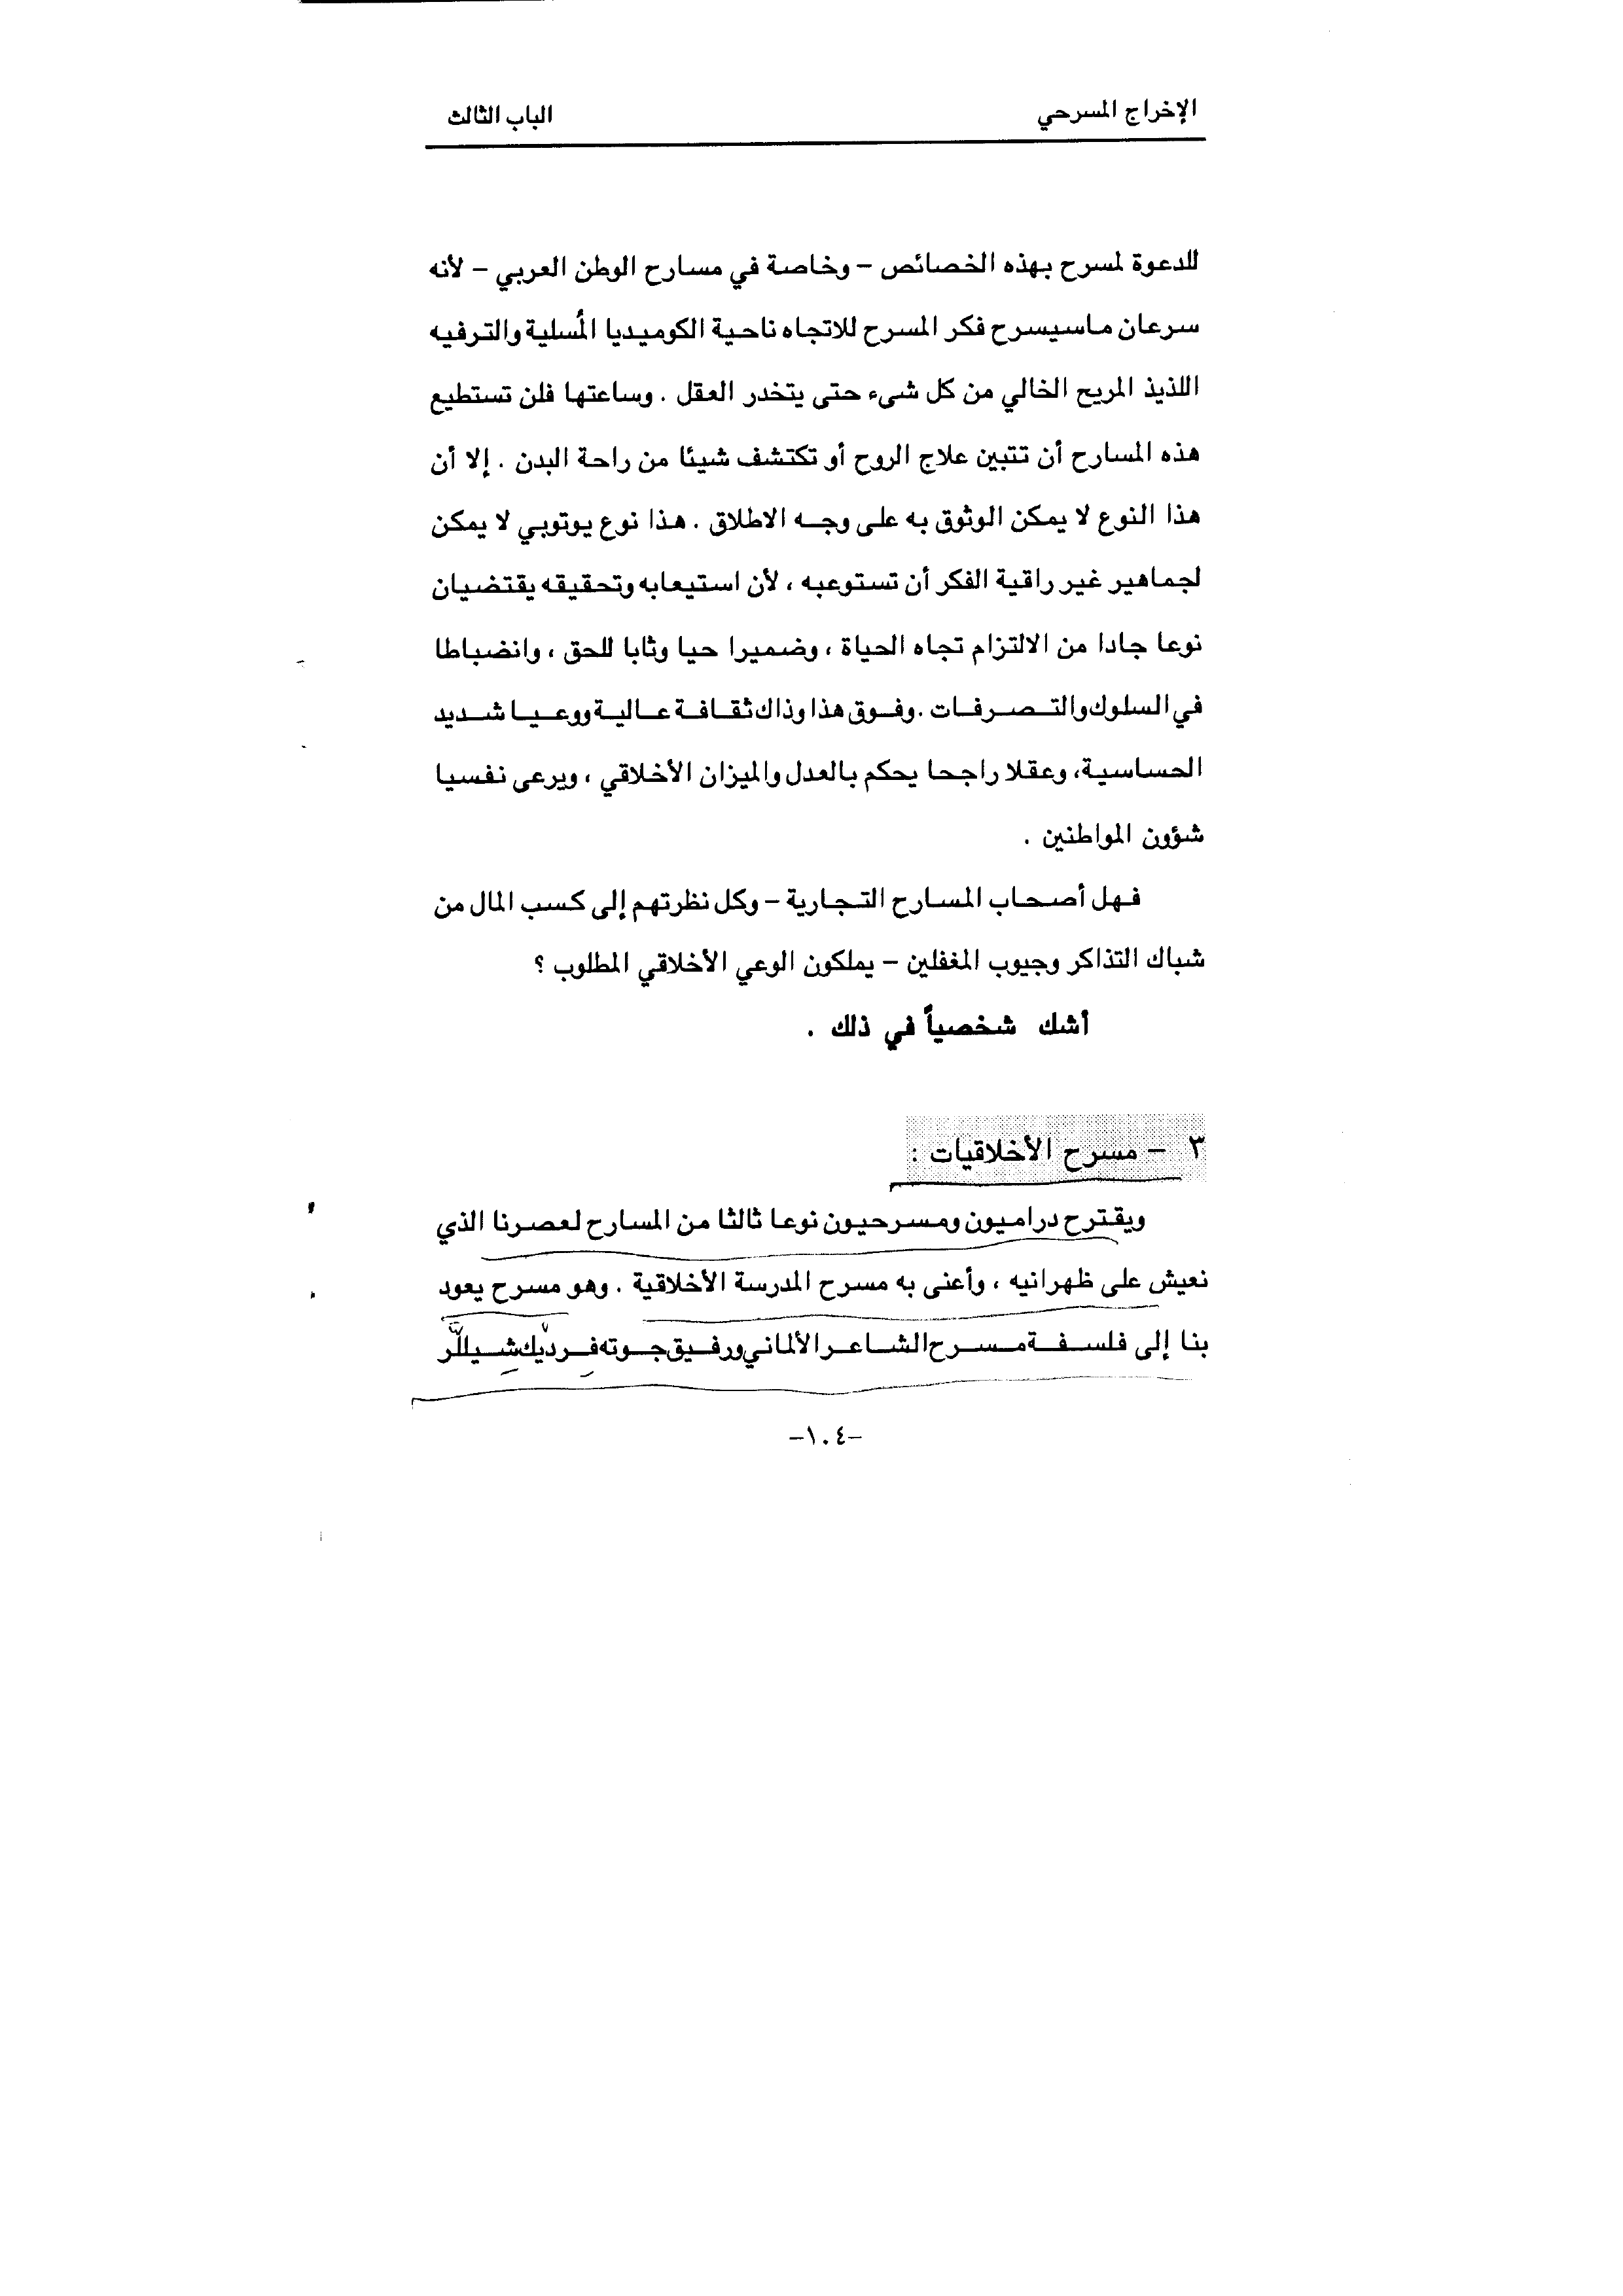 الإخراج المسرحي
الباب الثالث
للدعوة لمسرح بهذه الخصائص – وخاصة في مسارح الوطن العربي – لأنه
سرعان ماسيسرح فكر المسرح للاتجاه ناحية الكوميديا المُسلية والترفيه
اللذيذ المريح الخالي من كل شيء حتى يتخدر العقل . وساعتها فلن تستطيع
هذه المسارح أن تتبين علاج الروح أو تكتشف شيئا من راحة البدن . إلا أن
هذا النوع لا يمكن الوثوق به على وجه الاطلاق . هذا نوع يوتوبي لا يمكن
لجماهير غير راقية الفكر أن تستوعبه ، لأن استيعابه وتحقيقه يقتضيان
نوعا جادا من الالتزام تجاه الحياة ، وضميرا حيا وثابا للحق ، وانضباطا
في السلوك والتصرفات . وفوق هذا وذاك ثقافة عالية ووعيا شديد
الحساسية، وعقلا راجحا يحكم بالعدل والميزان الأخلاقي ، ويرعى نفسيا
شؤون المواطنين .
فهل أصحاب المسارح التجارية – وكل نظرتهم إلى كسب المال من
شباك التذاكر وجيوب المغفلين – يملكون الوعي الأخلاقي المطلوب ؟
أشك شخصياً في ذلك .
٣ – مسرح الأخلاقيات :
ويقترح دراميون ومسرحيون نوعا ثالثا من المسارح لعصرنا الذي
نعيش على ظهرانيه ، وأعنى به مسرح المدرسة الأخلاقية . وهو مسرح يعود
بنا إلى فلسفة مسرح الشاعر الألماني ورفيق جوته فرديك شيللر
–١٠٤–